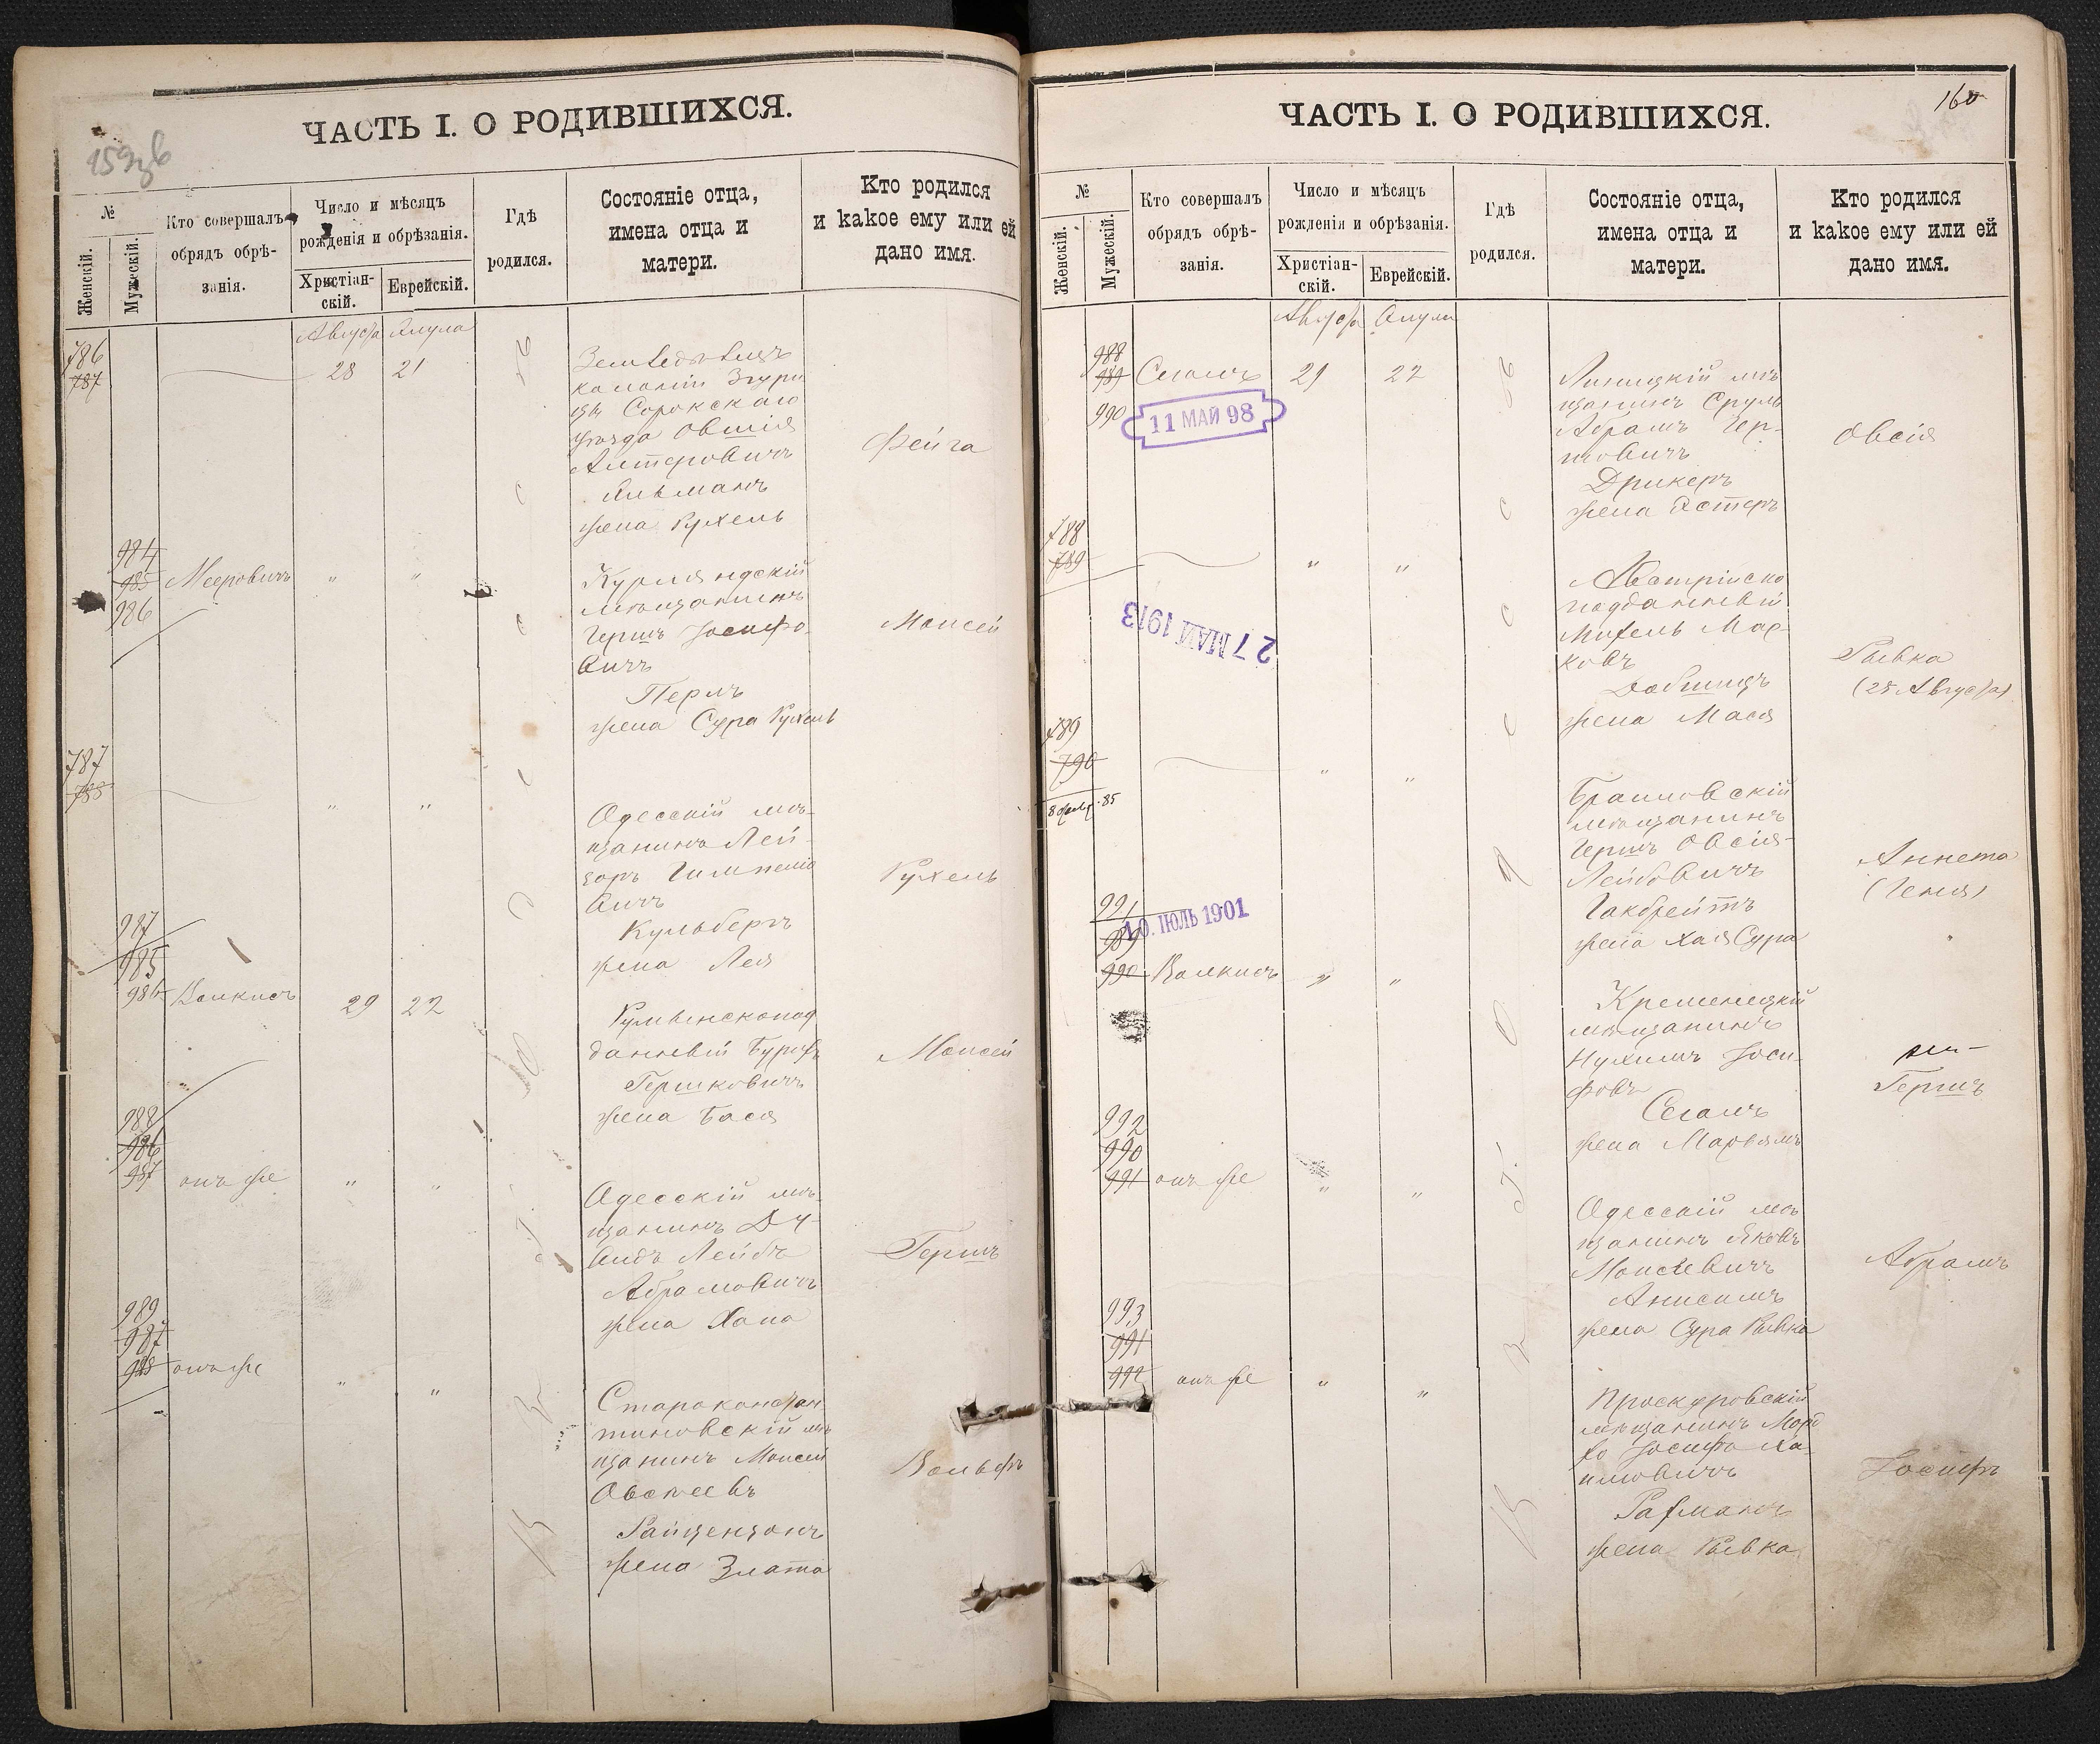 ЧАСТЬ I. О РОДИВШИХСЯ.
№
Женскій.
Мужескій.
Кто совершалъ
обрядъ обрѣ-
занія.
Число и мѣсяцъ
рожденія и обрѣзанія.
Христіан-
скій.
Еврейскій.
Гдѣ
родился.
Состояніе отца,
имена отца и
матери.
Кто родился
и какое ему или ей
дано имя.
Августа Элула
786
787
28 21
Земледѣлецъ
колоніи Згури
цы Сорокскаго
уѣзда Овшія
Алтеровичъ
жена Рухель
Фейга
984
985
986
Мееровичъ
" "
Курляндскій
мѣщанинъ
Гершъ Іосифо-
вичъ
Перлъ
жена Сура Рухель
Моисей
787
788
" "
Одесскій мѣ-
щанинъ Лей-
зоръ
вичъ
Кульбергъ
жена Лея
Рухель
987
985
986
Валкисъ
29 22
Румынскопод
данный
Гершковичъ
жена Бася
Моисей
988
986
987
онъ же
" "
Одесскій мѣ-
щанинъ Ду-
видъ Лейбъ
Абрамовичъ
жена Хана
Гершъ
989
987
988
онъ же
" "
Староконстан
тиновскій мѣ
щанинъ Моисей
Овсѣевъ
жена Злата
Вольфъ
ЧАСТЬ I. О РОДИВШИХСЯ.
160
№
Женскій.
Мужескій.
Кто совершалъ
обрядъ обрѣ-
занія.
Число и мѣсяцъ
рожденія и обрѣзанія.
Христіан-
скій.
Еврейскій.
Гдѣ
родился.
Состояніе отца,
имена отца и
матери.
Кто родился
и какое ему или ей
дано имя.
Августа Элула
988
989
990
Сегалъ
29 22
11 МАЙ 98
щанинъ Сруль
Абрамъ Гер-
шовичъ
Дрикеръ
жена Эстеръ
Овсій
788
789
" "
27 МАЙ 1913
Австрійско
подданный
Михель Мар-
ковъ
жена Мася
Рывка
(28 Августа)
789
790
" "
Браиловскій
мѣщанинъ
Гершъ Овсій-
Лейбовичъ
Гакбрейтъ
жена Хая Сура
Аннета
(Геня)
991
989
990
10. ІЮЛЬ 1901
Валкисъ
" "
Кременецкій
мѣщанинъ
Нухимъ Іоси-
фовъ
Сегалъ
жена Марьямъ
Гершъ
992
990
991
онъ же
" "
Одесскій мѣ
щанинъ Яковъ
Моисеевичъ
Анисимъ
жена Сура Рывка
Абрамъ
993
991
992
онъ же
" "
Проскуровскій
мѣщанинъ Морд
ко Іосифо Ха-
имовичъ
жена Рывка
Іосифъ